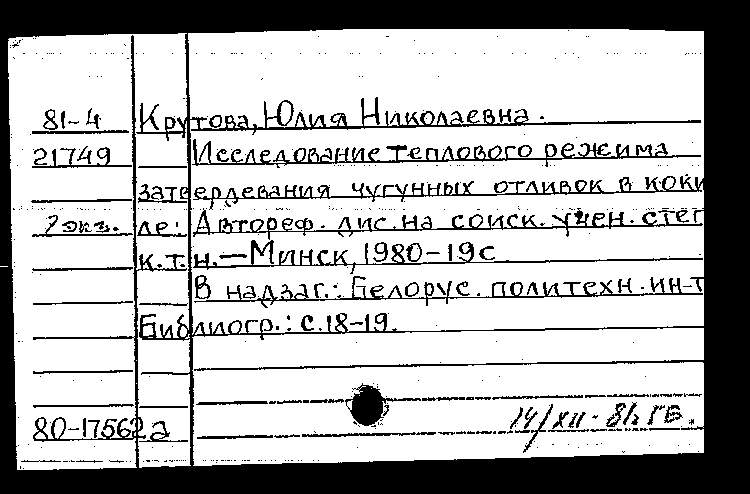 81-4 Крутова, Юлия Николаевна.
21749 Исследование теплового режима
затвердевания чугунных отливок в коки
ле: Автореф. дис. на соиск. учен. степ
к.т.н. — Минск, 1980 - 19 с
В надзаг.: Белорус. политехн. ин-т
Библиогр.: с. 18-19.
80-17562а
14/XII-81г.